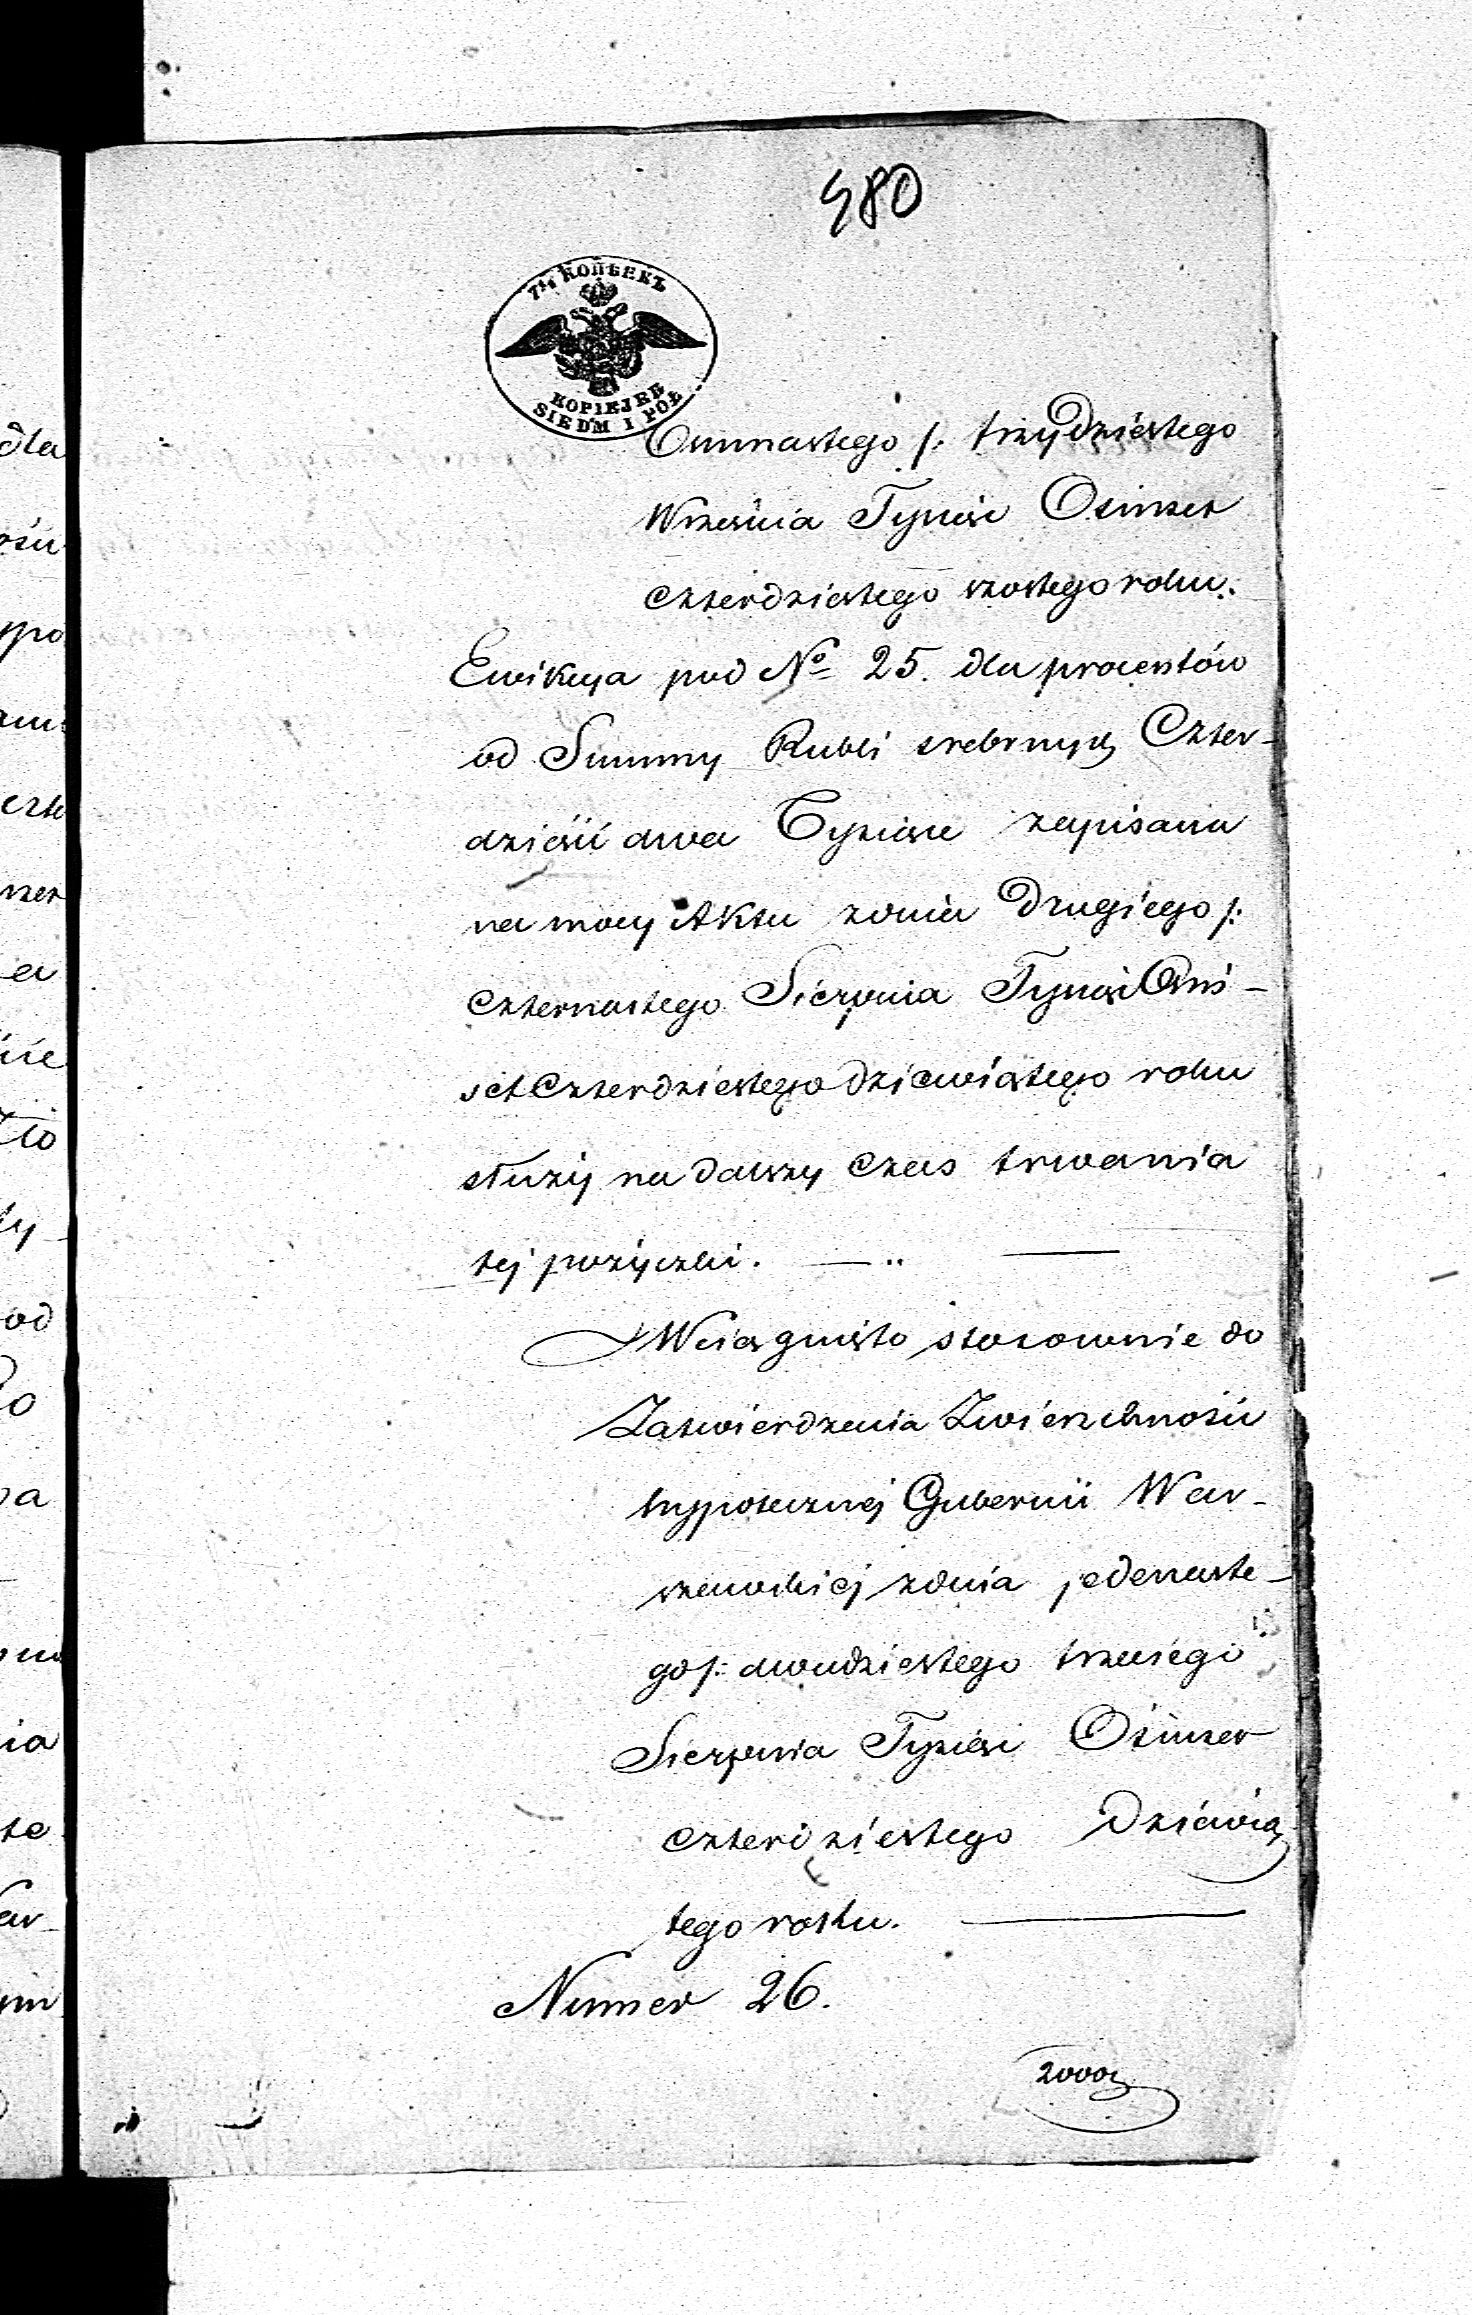 480
7½ КОПѢЕКЪ
KOPIEJEK
SIEDM I PÓŁ
Osmnastego /: trzydziestego
Września Tysiąc Ośmset
czterdziestego szostego roku.
Ewikcya pod No 25. dla procentów
od Summy Rubli srebrnych Czter-
dzieści dwa Tysiące zapisana
na mocy Aktu z dnia Drugiego /:
czternastego Sierpnia Tysiąc Ośm-
set Czterdziestego dziewiątego roku
służy na dalszy czas trwania
tej pożyczki.
Wciągnięto stosownie do
Zatwierdzenia Zwierzchności
hypotecznej Gubernii War-
szawskiej z dnia jedenaste-
go /: dwudziestego trzeciego
Sierpnia Tysiąc Ośmset
czterdziestego Dziewią
tego roku.
Numer 26.
dla
ości
ypo
a
od
pa
nia
te